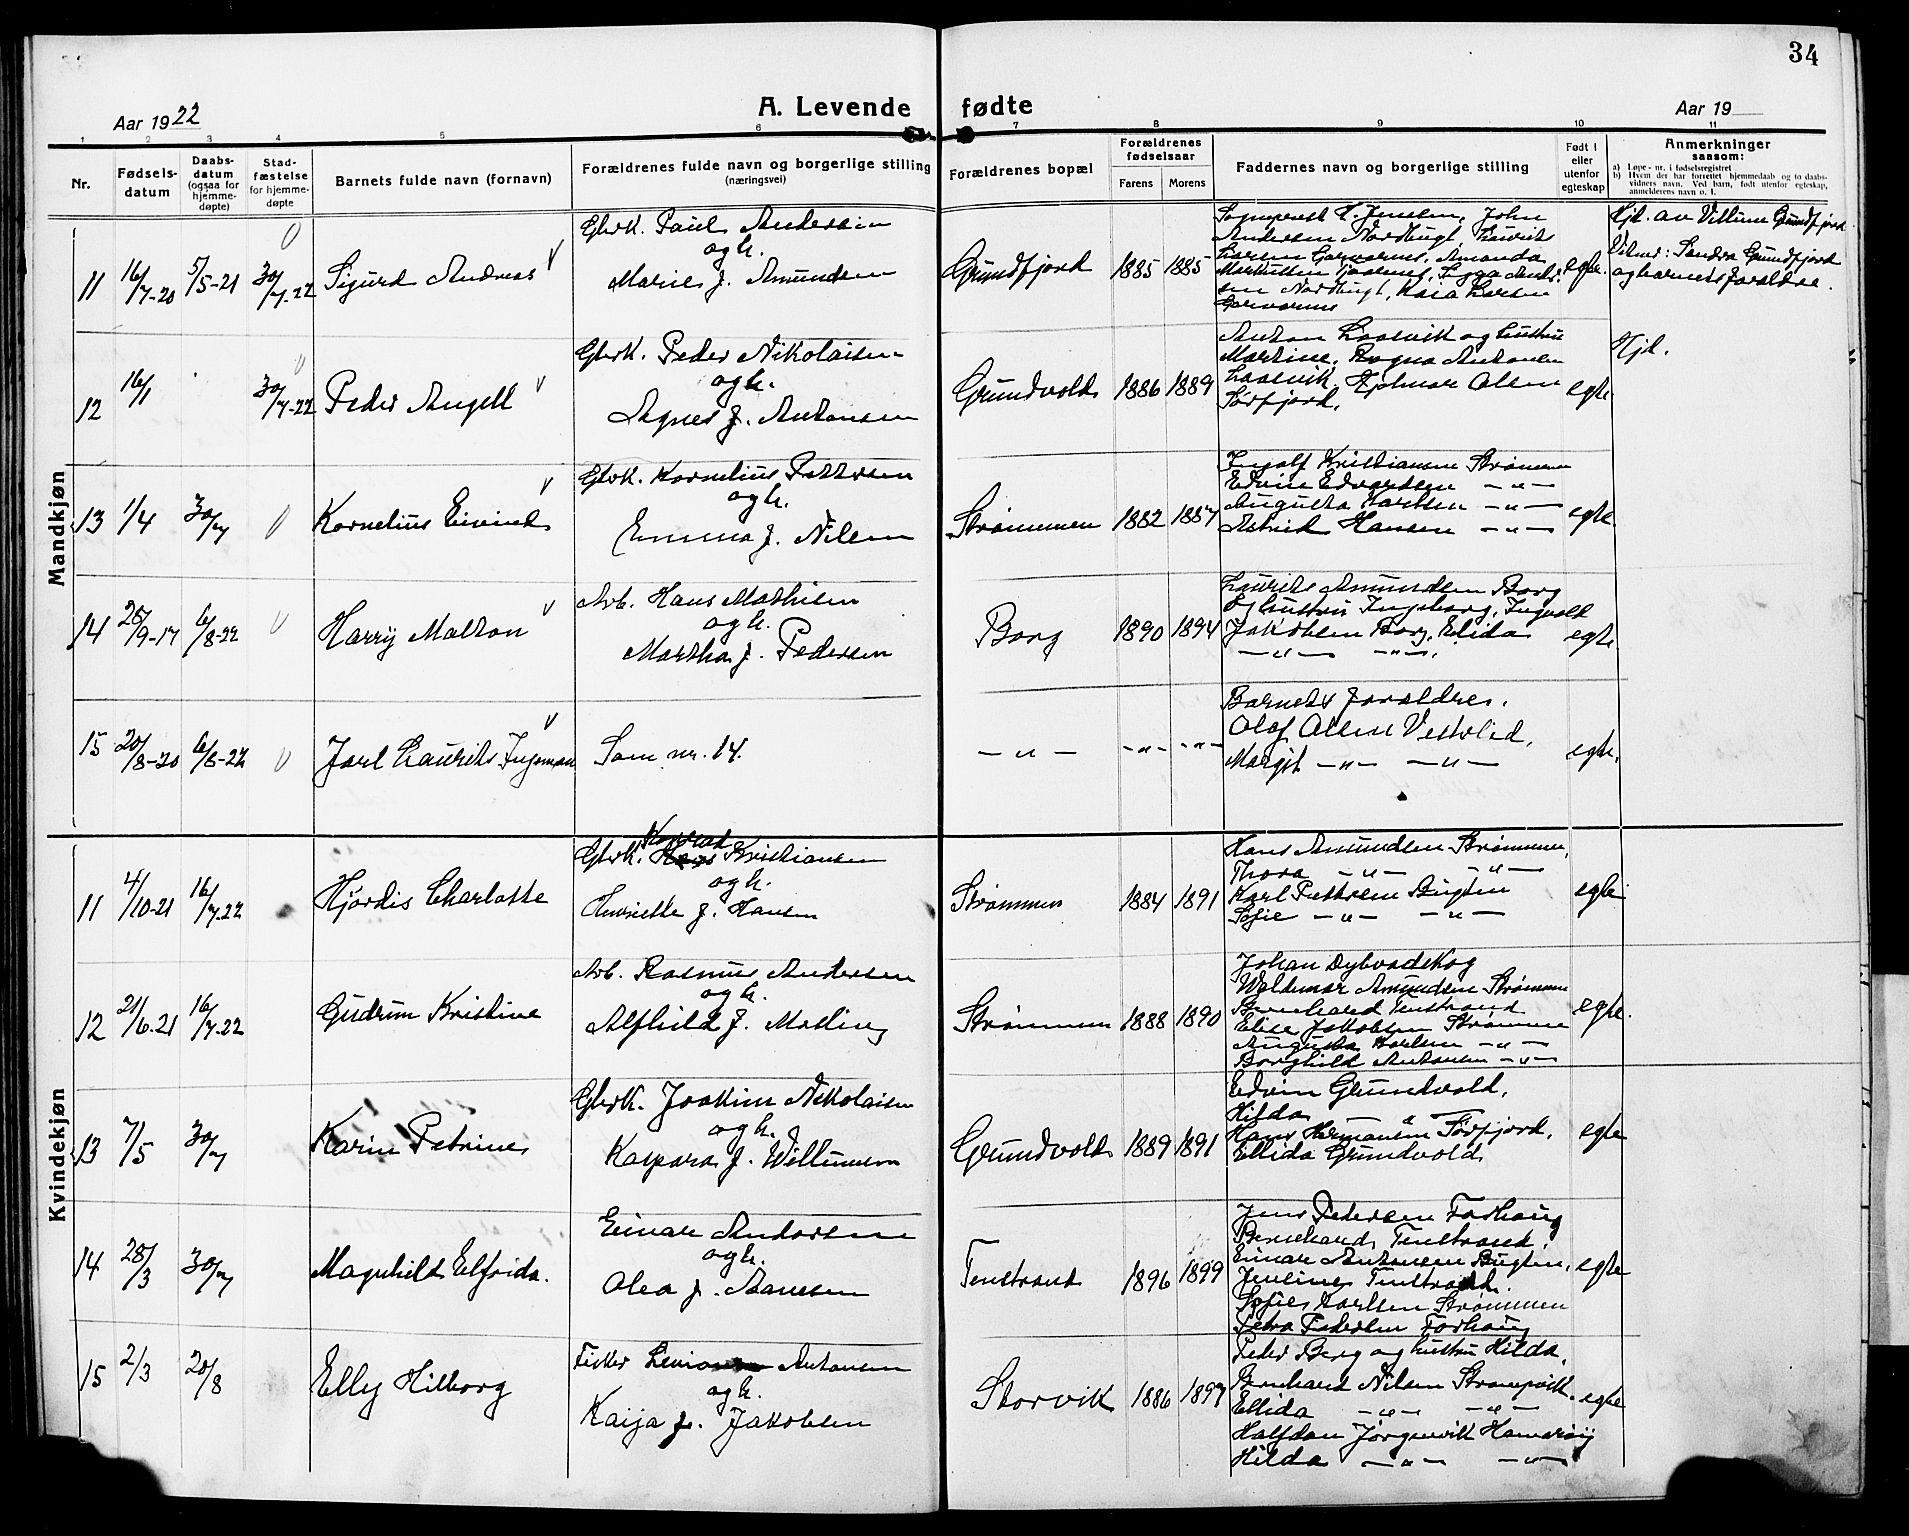 34
Aar 1922
A. Levende fødte
Aar 19
1 2 3 4 5 6 7 8 9 10 11
Nr.
Fødsels-
datum
Daabs-
datum
(ogsaa for
hjemme-
døpte)
Stad-
fæstelse
for hjemme-
døpte
Barnets fulde navn (fornavn)
Forældrenes fulde navn og borgerlige stilling
(næringsvei)
Forældrenes bopæl
Forældrenes
fødselsaar
Farens
Morens
Faddernes navn og borgerlige stilling
Født i
eller
utenfor
egteskap
Anmerkninger
saasom:
a) Løpe-nr. i fødselsregistret
b) Hvem der har forrettet hjemmedaab og to daabs-
vidners navn. Ved barn, født utenfor egteskap,
anmelderens navn o. l.
Mandkjøn
11 16/7-20 5/5-21 30/7-22 Sigurd Andreas
Gbrk. Paul Andersen
og h.
Marie f. Amundsen
Grundfjord 1885 1885
Jensen, John
Andersen Nordbugt, Laurits
Larsen Amanda
Markussen
Nordbugt, Kaia Larsen
egte.
Hjd. av Villum Grundfjord
Vitner: Sandra Grundfjord
og barnets forældre.
12 16/1 30/7-22 Peder Angell
Gbrk. Peder Nikolaisen
og h.
Agnes f. Antonsen
Grundvold 1886 1889
Anton og hustru
Martine, Ragna Antonsen
Hjalmar Olsen
Sørfjord.
egte
Hjd.
13 1/4 30/7 Kornelius Eivind
Gbrk. Kornelius Pettersen
og h.
Emma f. Nilsen
Strømmen 1882 1887
Ingolf Kristiansen Strømmen
Edvin Edvardsen — " —
Augusta Karlsen — " —
Astrid Hansen — " —
egte.
14 28/9-17 6/8-22 Harry Malton
Arb. Hans Mathisen
og h.
Martha f. Pedersen
Borg 1890 1894
Laurits Amundsen Borg
og hustru Ingeborg, Ingvald
Jakobsen Borg, Elida
— " — — " —
egte
15 20/8-20 6/8-22 Jarl Laurits Ingeman
Som nr. 14.
— " — — " — — " —
Barnets forældre.
Olaf Olsen Vestvlid,
Margit — " — — " —
egte.
Kvindekjøn
11 4/10-21 16/7-22 Hjørdis Charlotte
Konrad
Gbrk. Kristiansen
og h.
Henriette f. Hansen
Strømmen 1884 1891
Hans Amundsen Strømmen,
Thora — " — — " —
Karl Pettersen Bugten
Sofie — " — — " —
egte
12 21/6-21 16/7-22 Gudrun Kristine
Arb. Rasmus Andersen
og h.
Alfhild f. Meding
Strømmen 1888 1890
Johan Dybvadskog
Waldemar Amundsen Strømmen
Bernhard Tenstrand
Elise Jakobsen Strømmen
Augusta Karlsen — " —
Borghild Antonsen — " —
egte.
13 7/5 30/7 Karin Petrine
Gbrk. Joakim Nikolaisen
og h.
Kaspara f. Willumsen
Grundvold 1889 1891
Edvin Grundvold,
Hilda — " —
Hans Hermansen Sørfjord,
Ellida Grundvold
egte
14 28/3 30/7 Magnhild Elfrida.
Einar Andersen
og h.
Olea f. Aanesen
Tenstrand 1896 1899
Jens Pedersen Forhaug
Bernhard Tenstrand,
Einar Antonsen Bugten,
Jenline Tenstrand.
Sofie Karlsen Strømmen
Petra Pedersen Forhaug
egte
15 2/3 20/8 Elly Hilborg
Fisker Antonsen
og h.
Kaija f. Jakobsen
Storvik 1886 1897
Peder Berg og hustru Hilda,
Bernhard Nilsen
Ellida — " — — " —
Halfdan Jørgensvik Hamarøy
Hilda — " — — " —
egte